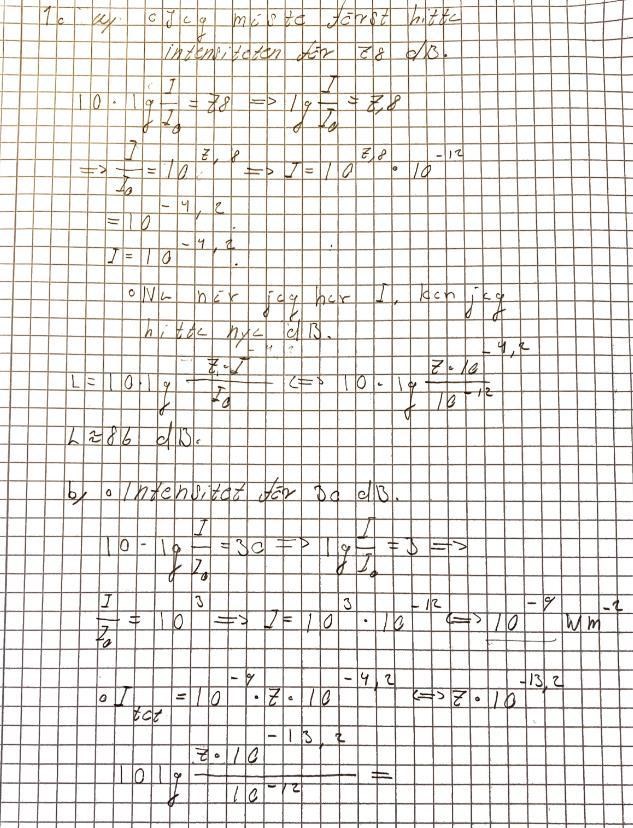 1. a) ∘ Jag måste först hitta
intensiteten för 78 dB.
10 · lg I/I₀ = 78 => lg I/I₀ = 7,8
=> I/I₀ = 10^7,8 => I = 10^7,8 · 10^-12
= 10^-4,2
I = 10^-4,2.
∘ Nu när jag har I, kan jag
hitta nya dB.
L = 10·lg 7·I/I₀ <=> 10 · lg 7·10^-4,2/10^-12
L ≈ 86 dB.
b) ∘ Intensitet för 30 dB.
10 - lg I/I₀ = 30 => lg I/I₀ = 3 =>
I/I₀ = 10^3 => I = 10^3 · 10^-12 <=> 10^-9 Wm^-2
∘ I_tot = 10^-9 · 7 · 10^-4,2 <=> 7 · 10^-13,2
10 lg 7·10^-13,2/10^-12 =